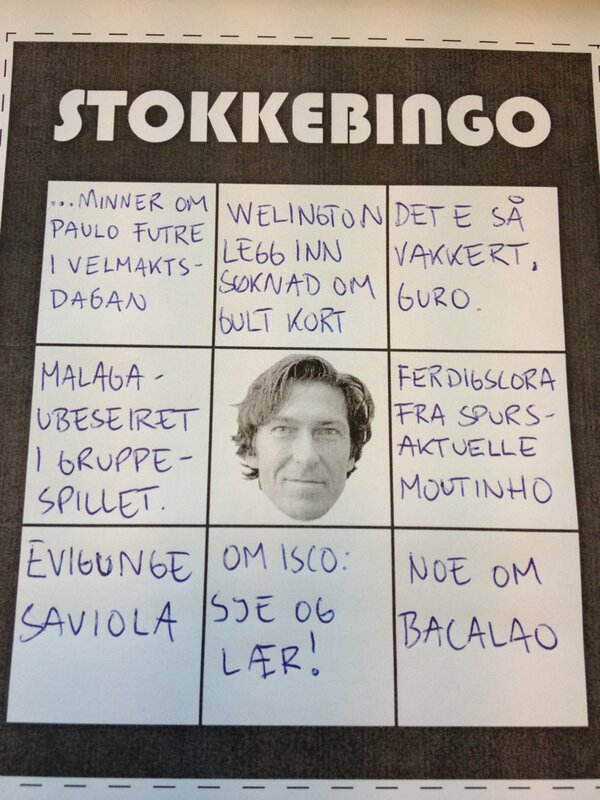 STOKKEBINGO
...MINNER OM
PAULO FUTRE
I VELMAKTS-
DAGAN
WELINGTON
LEGG INN
SØKNAD OM
GULT KORT
DET E SÅ
VAKKERT,
GURO.
MALAGA -
UBESEIRET
I GRUPPE-
SPILLET.
FERDIGSCORA
FRA SPURS-
AKTUELLE
MOUTINHO
EVIGUNGE
SAVIOLA
OM ISCO:
SJE OG
LÆR!
NOE OM
BACALAO